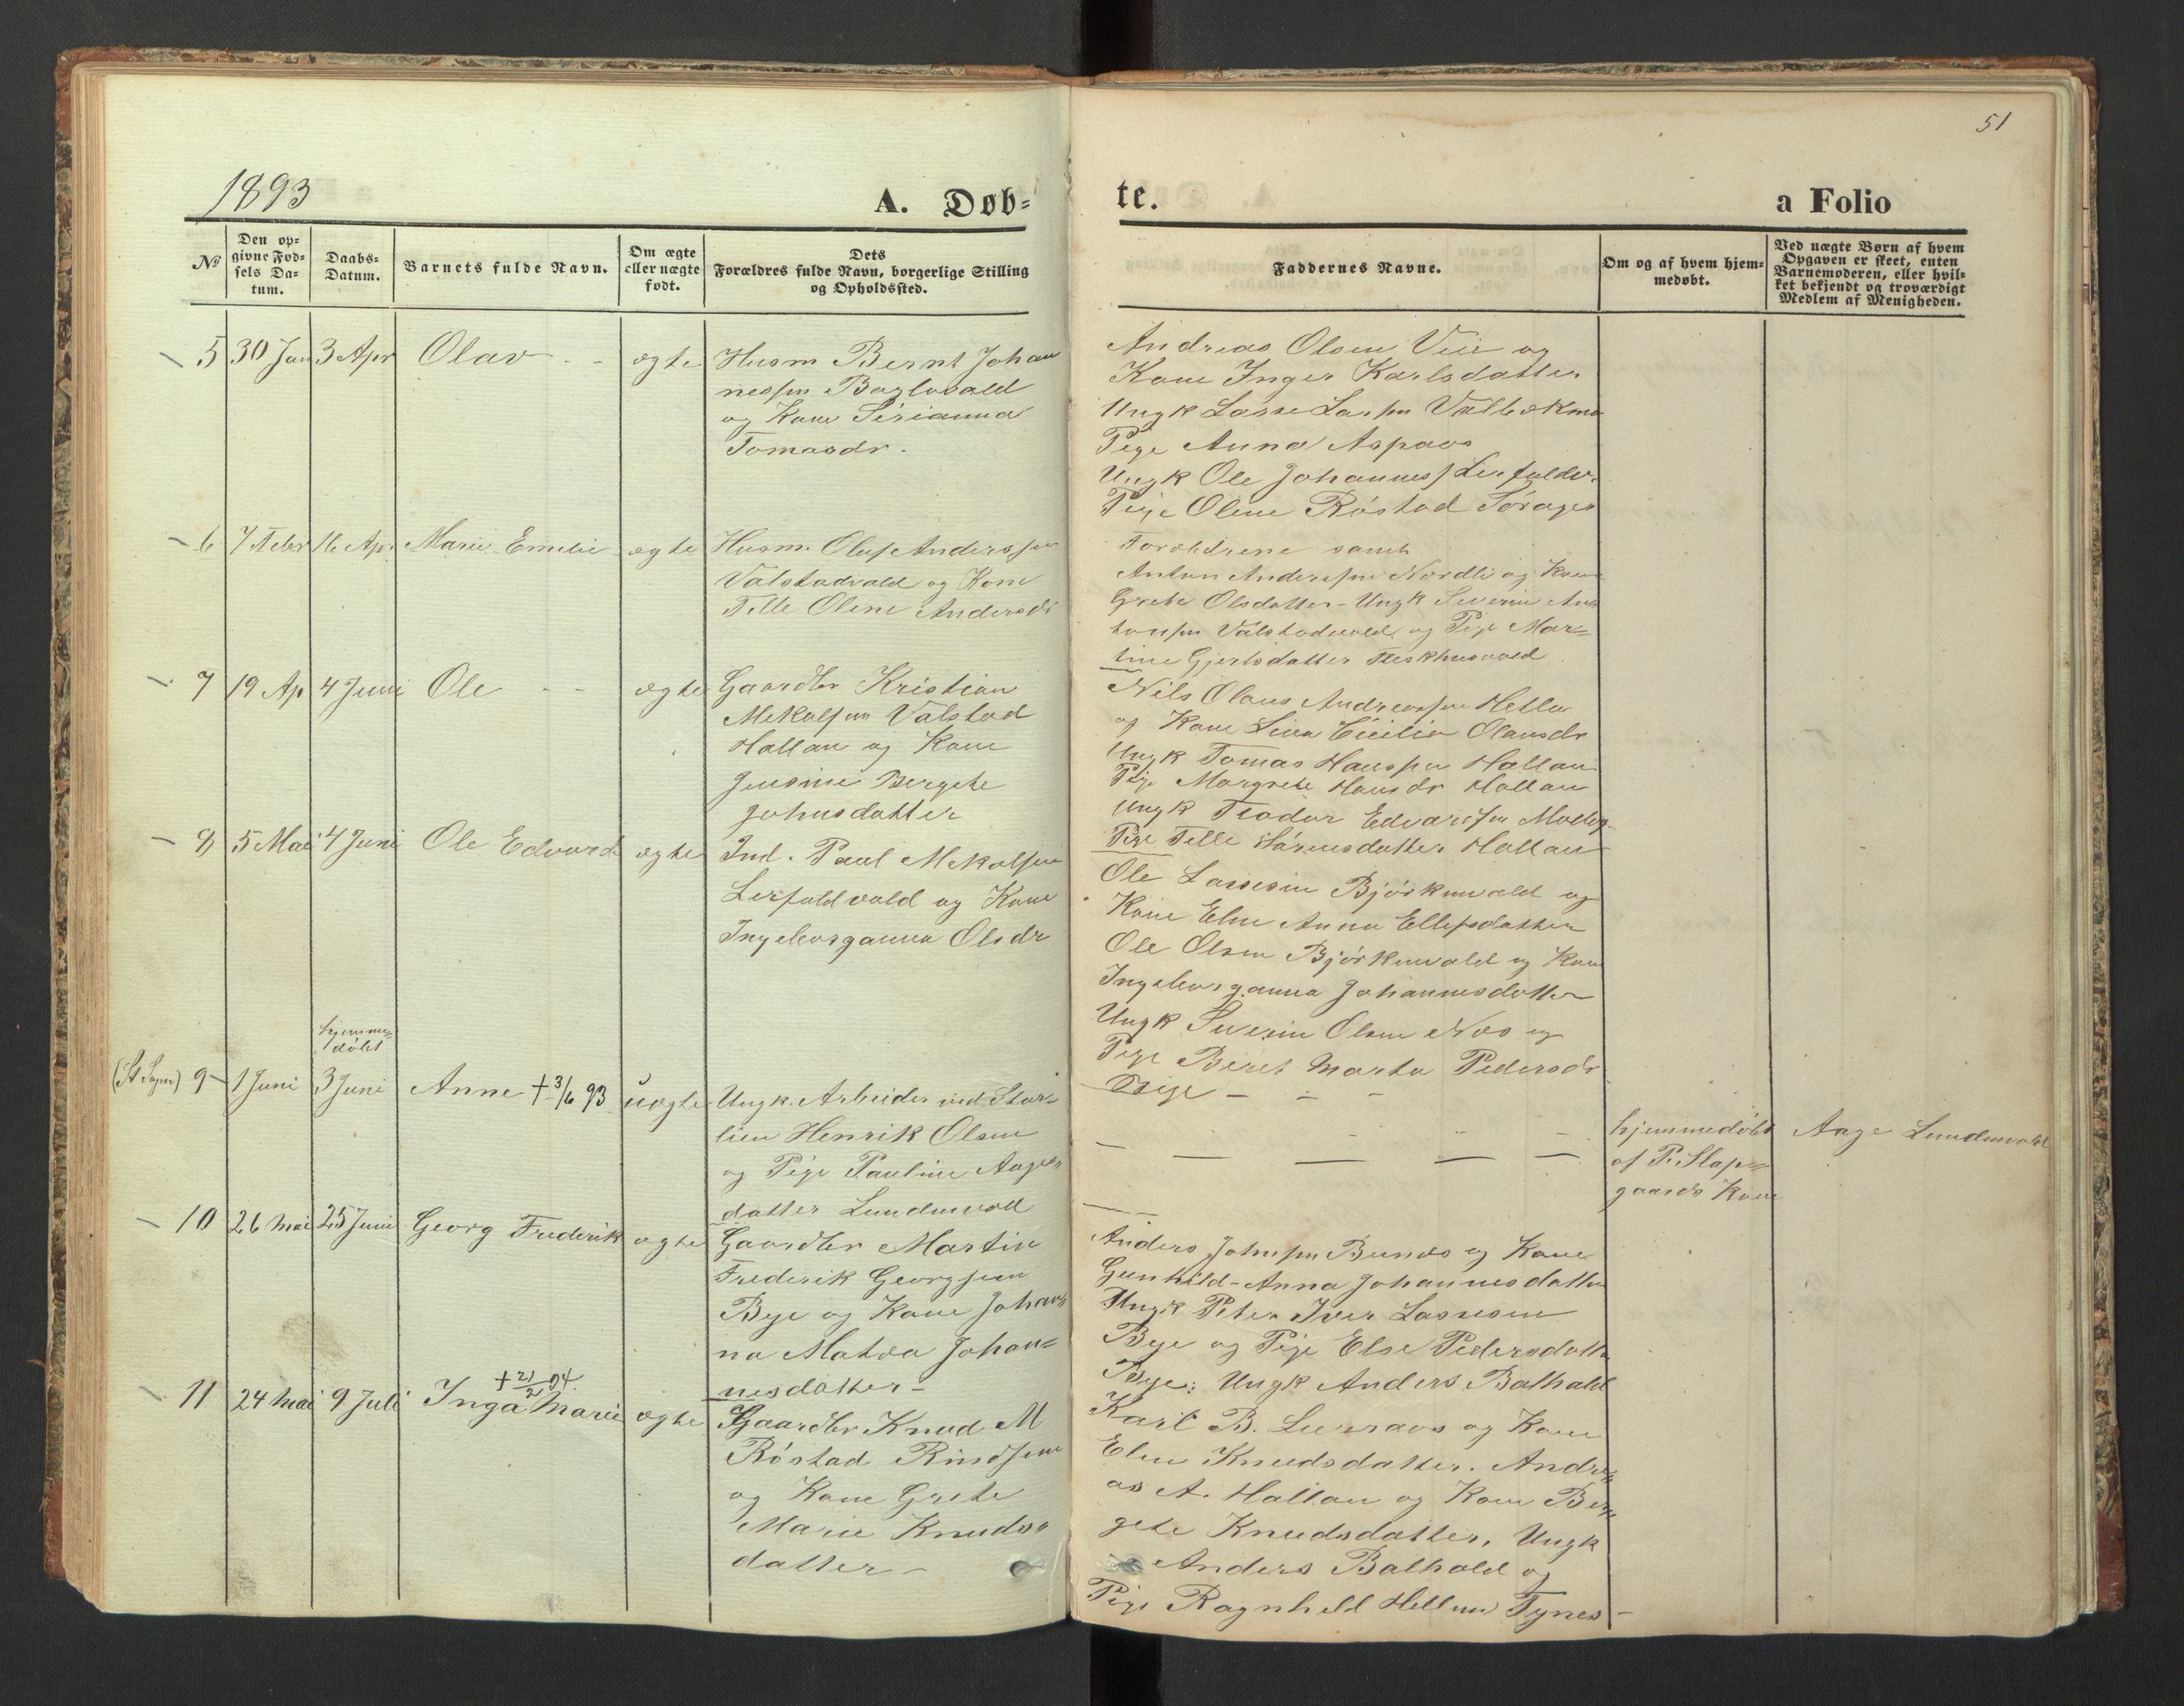 51
1893
A. Døb=
te.
a Folio
No
Den op=
givne Fød=
sels Da=
tum.
Daabs=
Datum.
Barnets fulde Navn.
Om ægte
eller uægte
født.
Dets
Forældres fulde Navn, borgerlige Stilling
og Opholdssted.
Faddernes Navne.
Om og af hvem hjem=
medøbt.
Ved uægte Børn af hvem
Opgaven er skeet, enten
Barnemoderen, eller hvil=
ket bekjendt og troværdigt
Medlem af Menigheden.
5 30 Jan 3 Apr Olav ægte
Husm Bernt Johan
nessen
og Kone Serianna
Tomasdr.
Andreas Olsen Veie og
Kone Inger Karlsdatter
Ungk Lasse Lassen
Pige Anna Aspaas
Ungk Ole Johannes
Pige Olene Røstad
6 7 Febr 16 Ap. Marie Emelie ægte
Husm. Oluf Anderssen
Valstadvald og Kone
Telle Oline Andersdr
Forældrene samt
Anton Anderssen Nordli og Kone
Grete Olsdatter - Ungk Severin An
tonsen Valstadvald og Pige Mar=
tine Gjertsdatter
7 19 Ap 4 Juni Ole ægte
Gaardbr Kristian
Mekalsen Valstad
Hallan og Kone
Jensine Bergete
Johnsdatter
Nils Olaus Andreassen Hetlo
og Kone Lina Cicilie Olausdr
Ungk Tomas Hanssen Hallan
Pige Margrete Hansdr Hallan
Ungk Teodor Edvardsen
Pige Telle Sørensdatter Hallan
8 5 Mai 4 Juni Ole Edvard ægte
Ind. Paul Mekalsen
Lerfaldvald og Kone
Ingeborganna Olsdr
Ole Lassesin Bjørkenvald og
Kone Elen Anna Ellefsdatter
Ole Olsen Bjørkenvald og Kone
Ingeborganna Johannesdatter
Ungk Severin Olsen Næs og
Pige Beret Marta Pedersdr
hjemme=
døbt
(St Sogn) 9 1 Juni 3 Juni Anne + 3/6 93 uægte
Ungk. Arbeider ved Stor=
lien Henrik Olsen
og Pige Pauline Aages
datter Lundenvald
hjemmedøbt
af P. Slap=
gaards Kone
Aage Lundenvald
10 26 Mai 25 Juni Georg Frederik ægte
Gaardbr Martin
Frederik Georgsen
Bye og Kone Johan
na Matea Johan=
nesdatter -
Anders Johnsen Bunæs og Kone
Gunhild-Anna Johannesdatter
Ungk Peter Iver Lassesen
Bye og Pige Else Pedersdatter
Bye: Ungk Anders Balhald
11 24 Mai 9 Juli Inga Marie ægte
+ 21/2 94
Gaardbr Knud M
Røstad Rindsem
og Kone Grete
Marie Knuds=
datter -
Karl B. Leeraas og Kone
Elen Knudsdatter. Andre=
as A. Hallan og Kone Ber=
gete Knudsdatter, Ungk
Anders Balhald og
Pige Ragnhild Hellem Tynes -